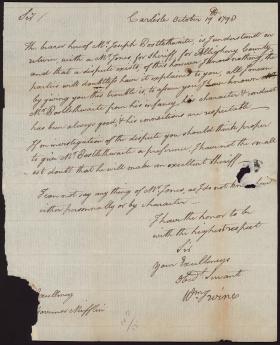 Sir / Carlisle October 19th 1798
The bearer hereof Mr. Joseph Postlethwaite, is I understand on
return, with a Mr. Jones for Sheriff for Allegheny County
and that a dispute exists of this however I know nothing, the
parties will doubtless have it explained to you, all I mean
by giving you this trouble is to assure you I have known
Mr. Postlethwaite from his infancy, his character & conduct
has been always good, & his connections are respectable
If on investigation of the dispute you should think proper
to give Mr. Postlethwaite a preference, I have not the small
est doubt that he will make an excellent Sheriff
I can not say any thing of Mr. Jones, as I do not know him
either personally or by character —
I have the honor to be
with the highest respect
Sir
Your Excellencys
Obedt. Servant
Wm Irvine
Excellency
Governor Mifflin